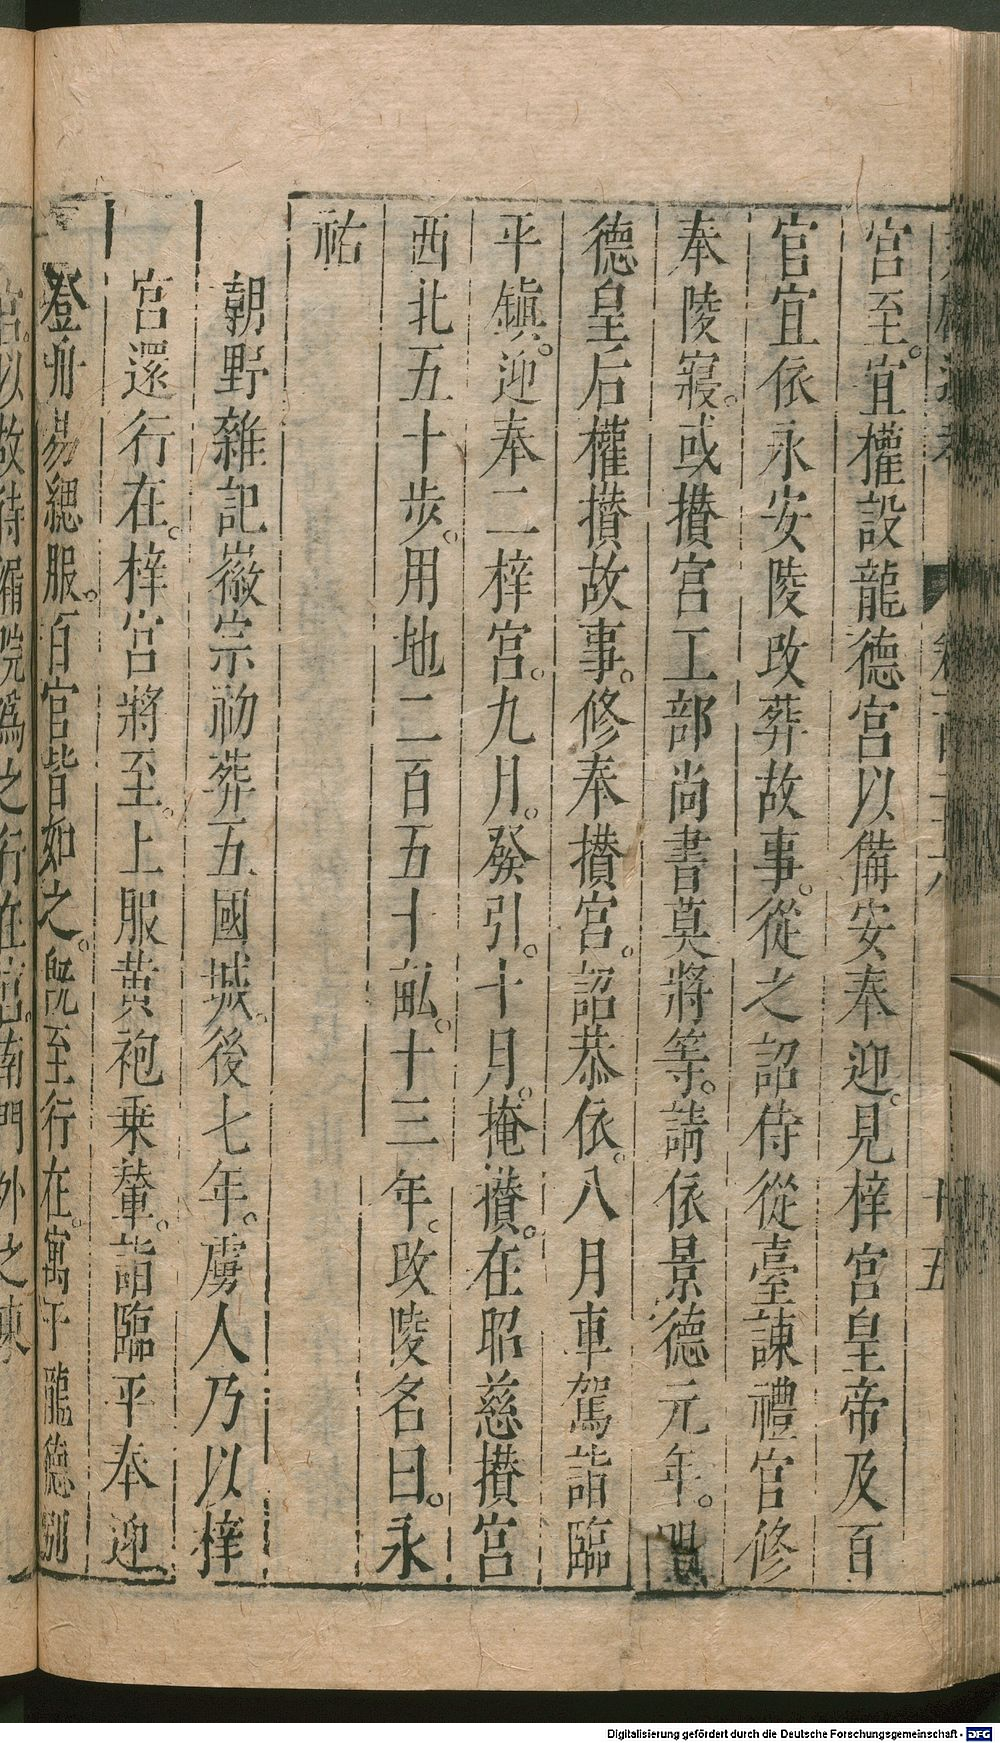 宮至。宜權設龍德宮以備安奉迎。見梓宮皇帝及百
官宜依永安陵改葬故事。從之詔侍從臺諫禮官修
奉陵寢。或攢宮工部尚書莫將等。請依景德元年。明
德皇后權攢故事。修奉攢宮。詔恭依。八月車駕詣臨
平鎮。迎奉二梓宮。九月。發引。十月。掩攢。在昭慈攢宮
西北五十步。用地二百五十畝。十三年。改陵名曰。永
祐
朝野雜記徽宗初葬五國城。後七年。虜人乃以梓
宮還行在。梓宮將至。上服黃袍乗輦。詣臨平奉迎
登舟易緦服。百官皆如之。旣至行在。寓于龍德別
宮。以故待漏院爲之行在宮。南門外之東
十五
Digitalisierung gefördert durch die Deutsche Forschungsgemeinschaft - DFG